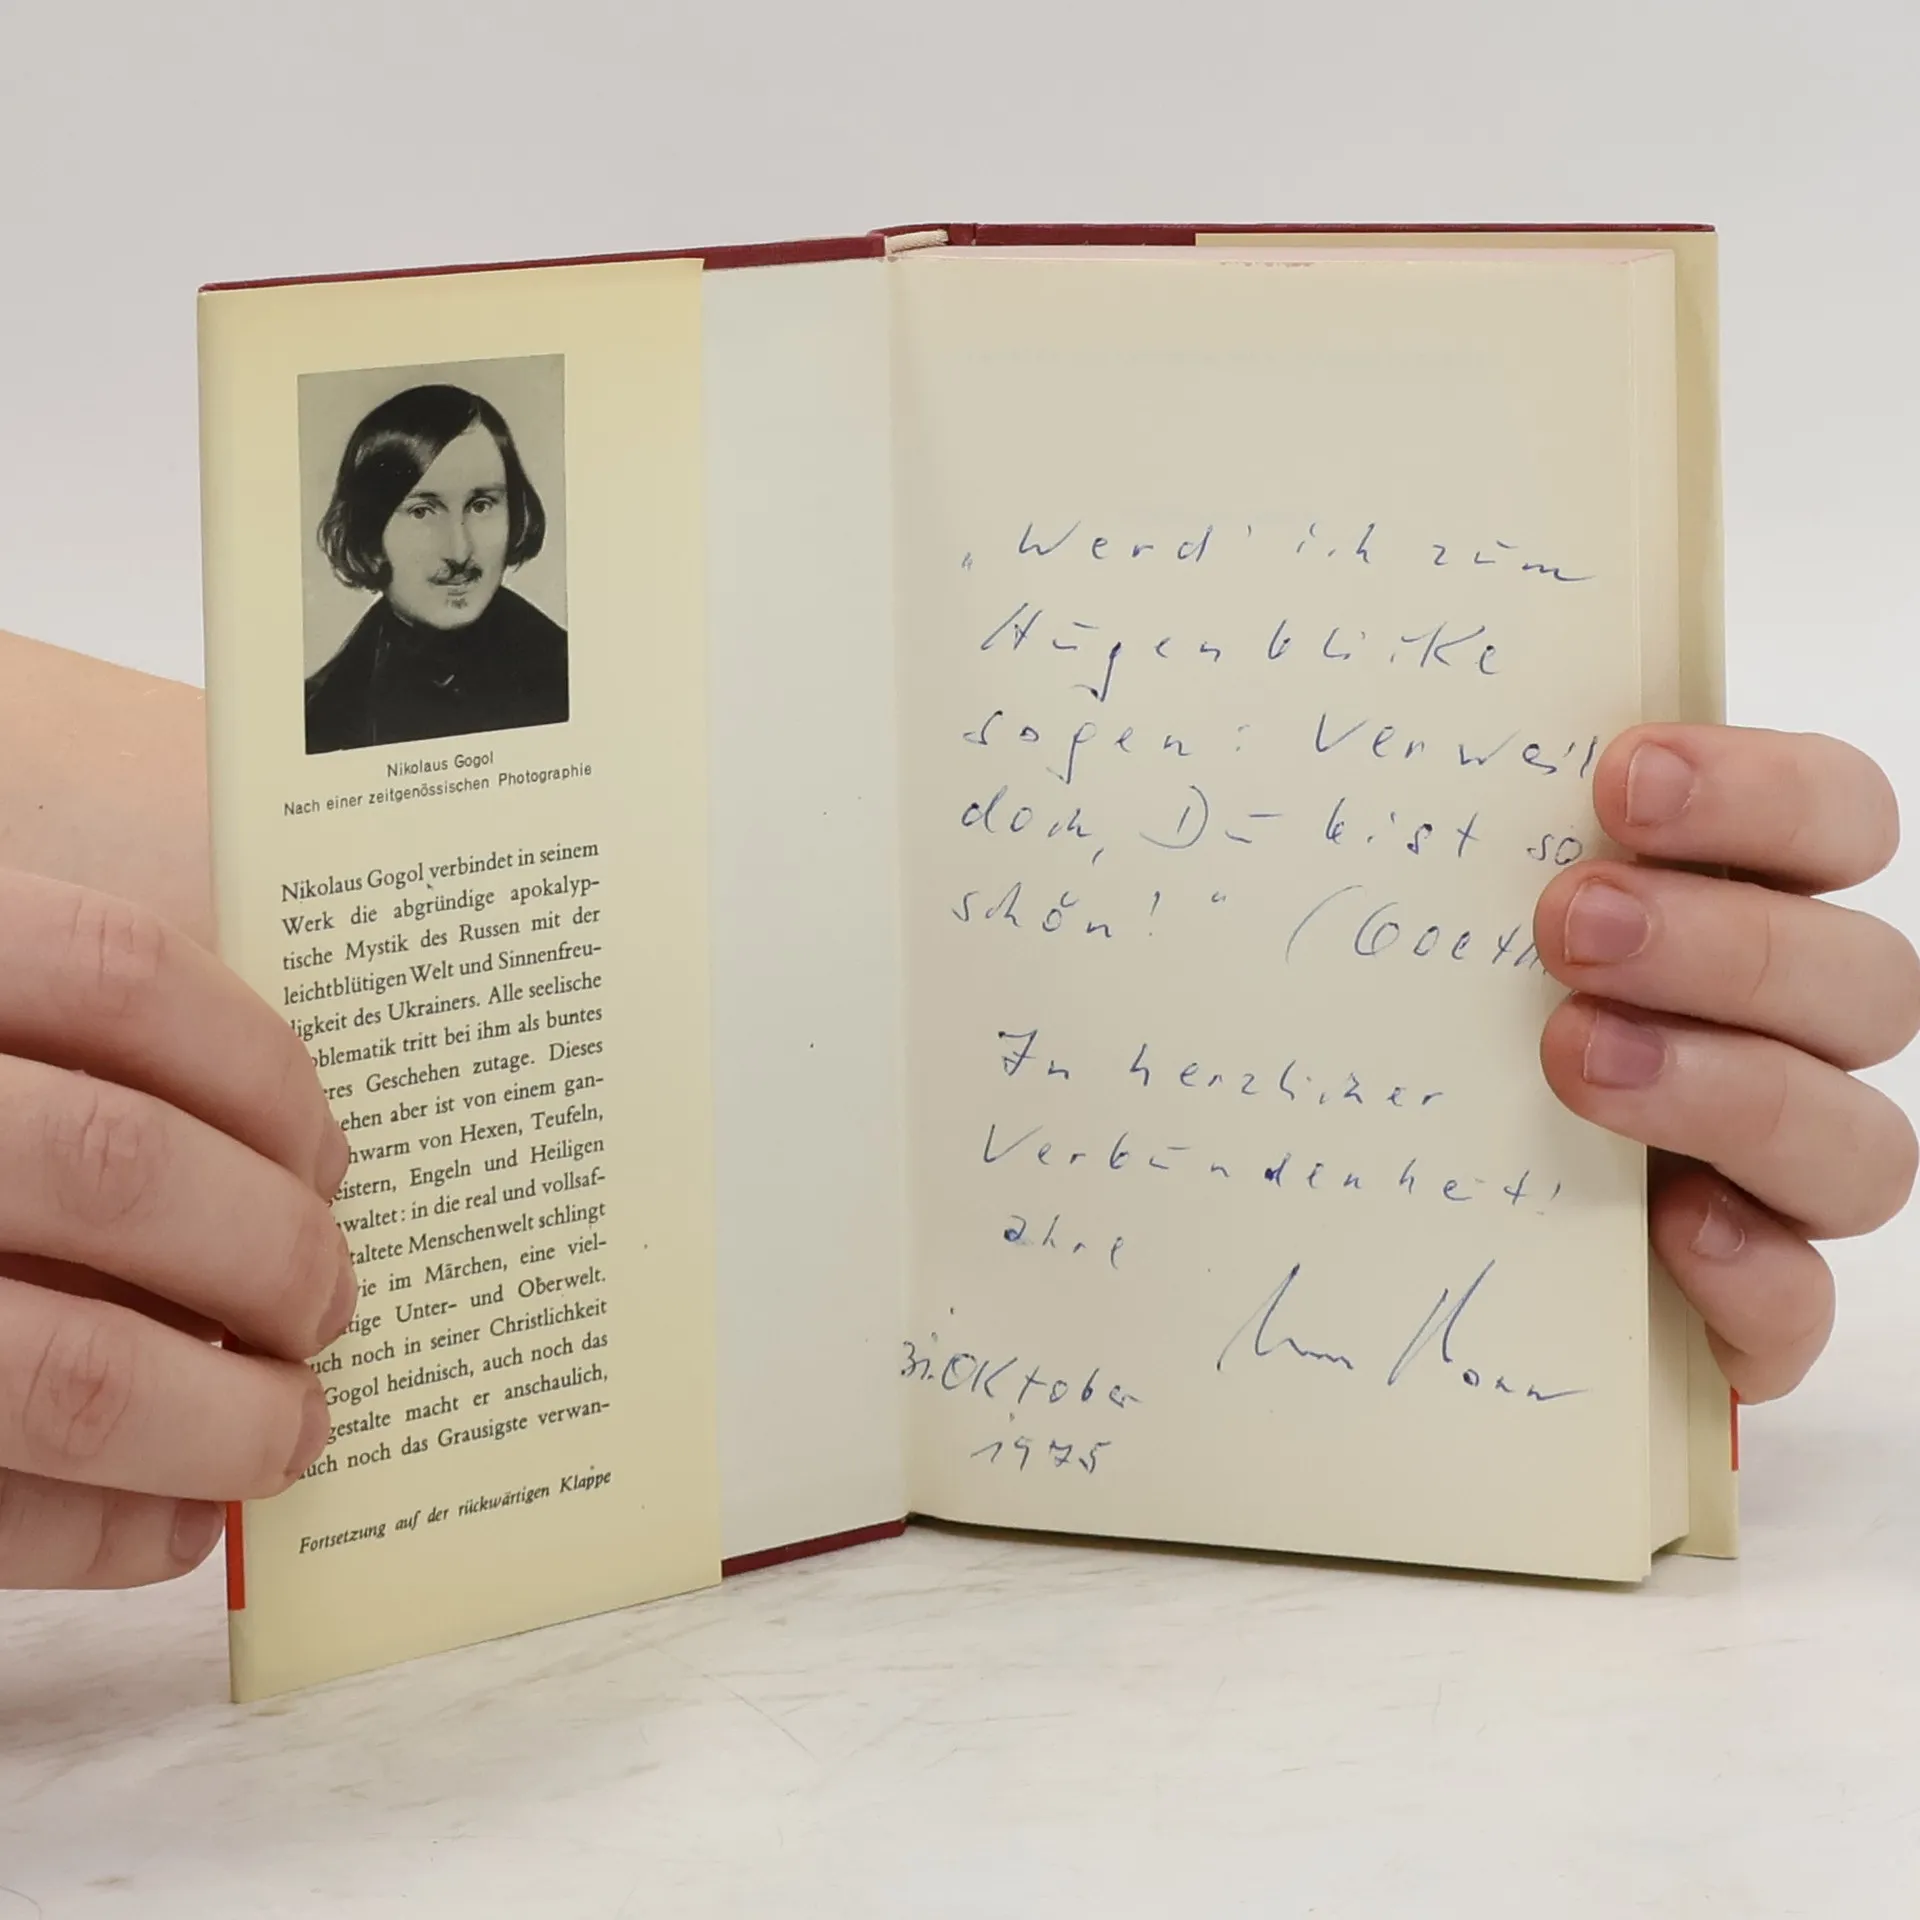 Nikolaus Gogol
Nach einer zeitgenössischen Photographie
Nikolaus Gogol verbindet in seinem
Werk die abgründige apokalyp-
tische Mystik des Russen mit der
leichtblütigen Welt und Sinnenfreu-
digkeit des Ukrainers. Alle seelische
oblematik tritt bei ihm als buntes
eres Geschehen zutage. Dieses
ehen aber ist von einem gan-
hwarm von Hexen, Teufeln,
eistern, Engeln und Heiligen
waltet: in die real und vollsaf-
taltete Menschenwelt schlingt
ie im Märchen, eine viel-
tige Unter- und Oberwelt.
uch noch in seiner Christlichkeit
Gogol heidnisch, auch noch das
gestalte macht er anschaulich,
uch noch das Grausigste verwan-
Fortsetzung auf der rückwärtigen Klappe
„Werd' ich zum
Augenblicke
sagen: Verweil
doch, Du bist so
schön!" (Goeth
In herzlicher
Verbundenheit!
Ihre
31. Oktober
1975